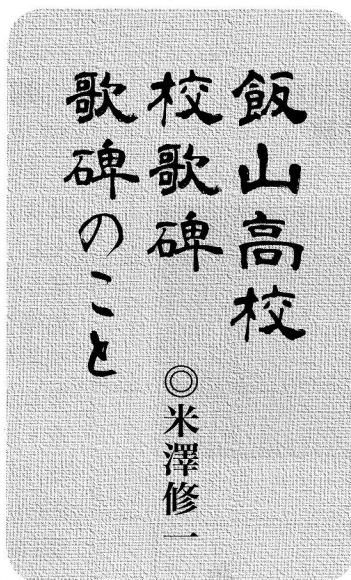 飯山高校
校歌碑
歌碑のこと
◎米澤修一